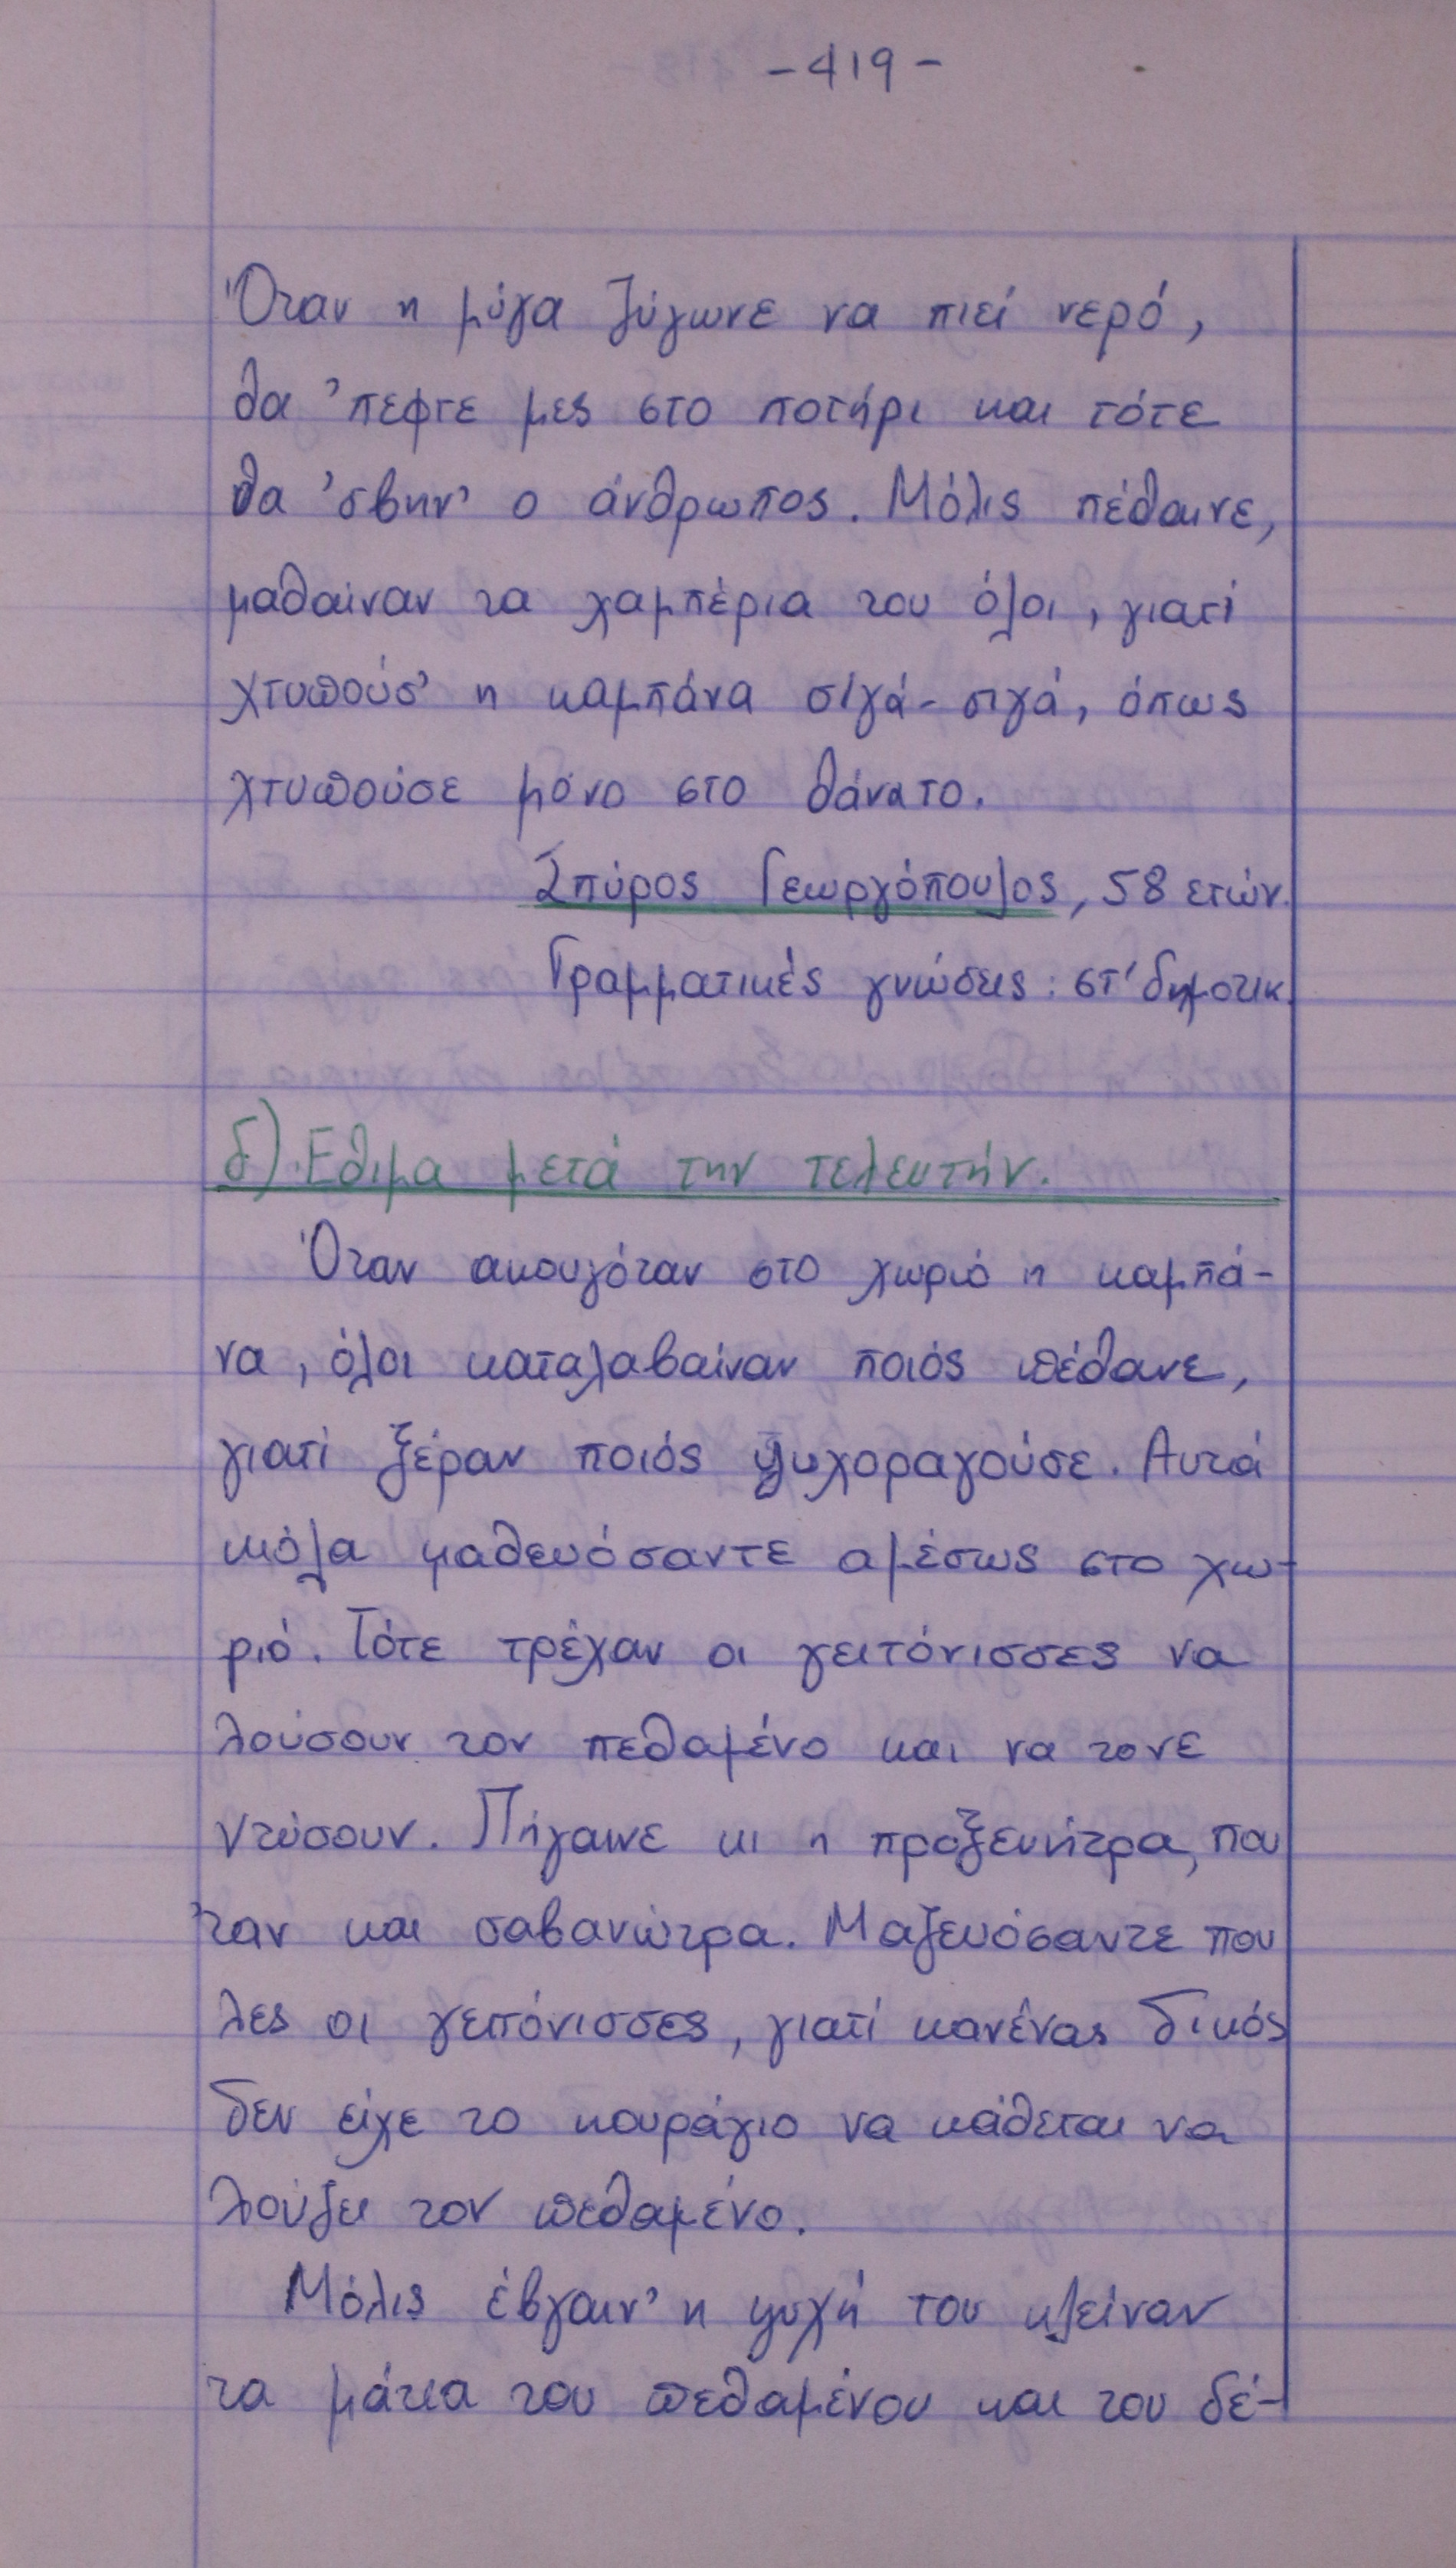 -419-
Όταν η μύγα ζύγωνε να πιεί νερό,
θα 'πεφτε μες στο ποτήρι και τότε
θα 'σβην' ο άνθρωπος. Μόλις πέθαινε,
μαθαίναν τα χαμπέρια του όλοι, γιατί
χτυπούσ' η καμπάνα σιγά-σιγά, όπως
χτυπούσε μόνο στο θάνατο.
Σπύρος Γεωργόπουλος, 58 ετών.
Γραμματικές γνώσεις: στ' δημοτικ.
δ) Έθιμα μετά την τελευτήν.
Όταν ακουγόταν στο χωριό η καμπά-
να, όλοι καταλαβαίναν ποιός πέθανε,
γιατί ξέραν ποιός ψυχοραγούσε. Αυτά
κιόλα μαθευόσαντε αμέσως στο χω-
ριό. Τότε τρέχαν οι γειτόνισσες να
λούσουν τον πεθαμένο και να τονε
ντύσουν. Πήγαινε κι η προξενήτρα, που
'ταν και σαβανώτρα. Μαζευόσαντε που
λες οι γειτόνισσες, γιατί κανένας δικός
δεν είχε το κουράγιο να κάθεται να
λούζει τον πεθαμένο.
Μόλις έβγαιν' η ψυχή του κλείναν
τα μάτια του πεθαμένου και του δέ-